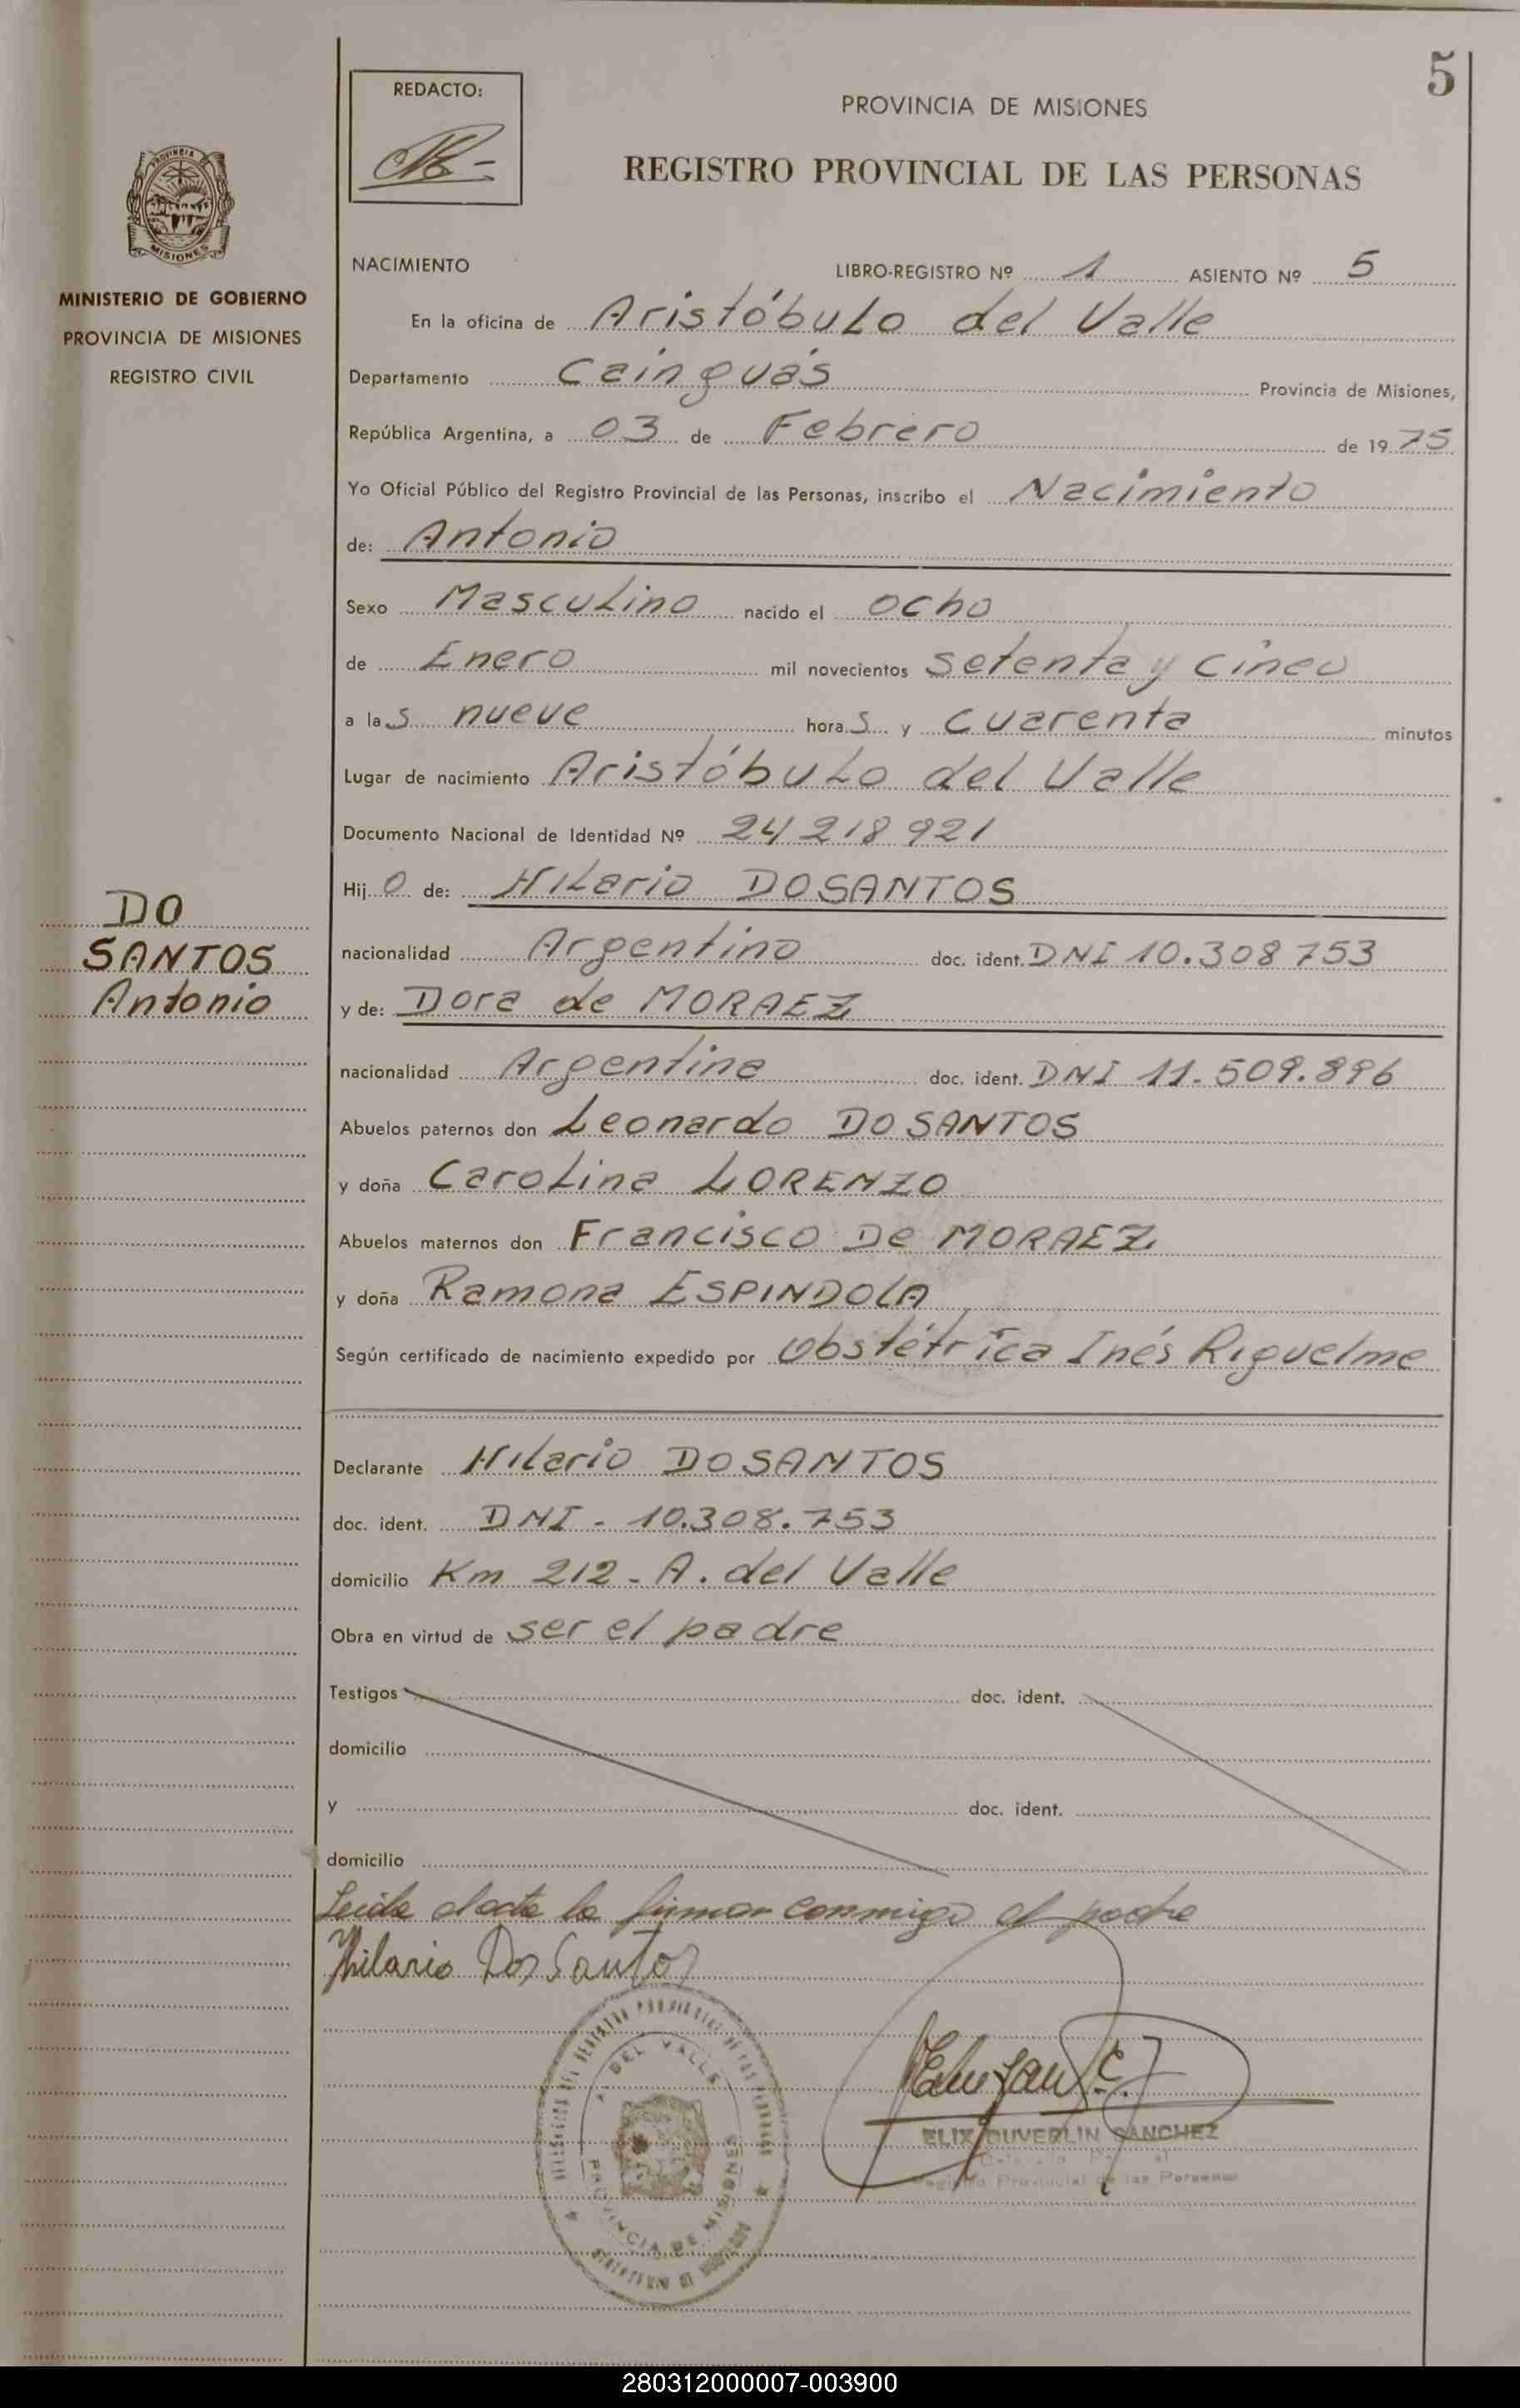 5
REDACTO:
PROVINCIA DE MISIONES
REGISTRO PROVINCIAL DE LAS PERSONAS
PROVINCIA DE
MISIONES
MINISTERIO DE GOBIERNO
PROVINCIA DE MISIONES
REGISTRO CIVIL
NACIMIENTO LIBRO-REGISTRO Nº 1 ASIENTO Nº 5
En la oficina de Aristóbulo del Valle
Departamento Cainguás Provincia de Misiones,
República Argentina, a 03 de Febrero de 1975
Yo Oficial Público del Registro Provincial de las Personas, inscribo el Nacimiento
de: Antonio
Sexo Masculino nacido el ocho
de Enero mil novecientos setenta y cinco
a las nueve horas y cuarenta minutos
Lugar de nacimiento Aristóbulo del Valle
Documento Nacional de Identidad Nº 24 218 921
Hijo de: Hilario DOSANTOS
DO
SANTOS
Antonio
nacionalidad Argentino doc. ident. DNI 10.308 753
y de: Dora de MORAEZ
nacionalidad Argentina doc. ident. DNI 11.509.896
Abuelos paternos don Leonardo DO SANTOS
y doña Carolina LORENZO
Abuelos maternos don Francisco De MORAEZ
y doña Ramona ESPINDOLA
Según certificado de nacimiento expedido por Obstétrica Inés Riquelme
Declarante Hilario DO SANTOS
doc. ident. DNI - 10.308.753
domicilio Km 212 - A. del Valle
Obra en virtud de ser el padre
Testigos doc. ident.
domicilio
y doc. ident.
domicilio
Leida el acta la firman conmigo el padre
Hilario Dos Santos
A. DEL VALLE
PROVINCIA DE MISIONES
ELIX DUVERLIN SANCHEZ
Registro Provincial de las Personas
280312000007-003900